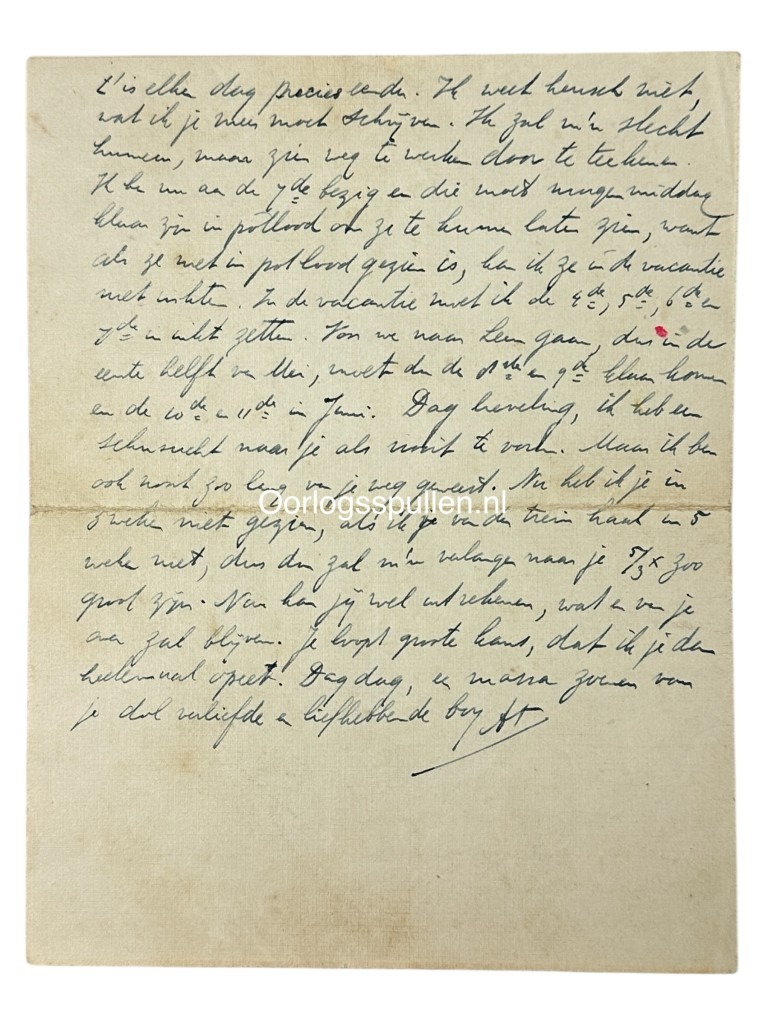 t' is elken dag precies eender. Ik weet heusch niet,
wat ik je meer moet schrijven. Ik zal m'n slecht
humeur, maar zien weg te werken door te teekenen.
Ik ben nu aan de 7de bezig en die moet morgenmiddag
klaar zijn in potlood om ze te kunnen laten zien, want
als ze niet in potlood gezien is, kan ik ze in de vacantie
niet inkten. In de vacantie moet ik de 4de, 5de, 6de en
7de in inkt zetten. Voor we naar gaan, dus in de
eerste helft van Mei, moet dan de 8ste en 9de klaar komen
en de 10de en 11de in Juni. Dag lieveling, ik heb een
sehnsucht naar je als nooit te voren. Maar ik ben
ook nooit zoo lang van je weg geweest. Nu heb ik je in
3 weken niet gezien, als ik je van den trein haal in 5
weken niet, dus dan zal m'n verlangen naar je 5/3 x zoo
groot zijn. Nou kan jij wel uitrekenen, wat er van je
over zal blijven. Je loopt groote kans, dat ik je dan
heelemaal opeet. Dag dag, een massa zoenen van
je dol verliefde en liefhebbende boy
Oorlogsspullen.nl